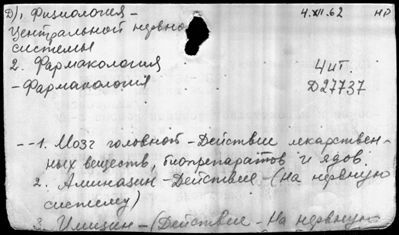 Д), Физиология - 4.XII.62 НР
Центральной нервно
системы
2. Фармакология Чит.
- Фармакология Д27737
-- 1. Мозг головной - Действие лекарствен-
ных веществ, биопрепаратов и ядов.
2. Аминазин - Действие - (на нервную
систему)
3. Имизин - (Действие - на нервную